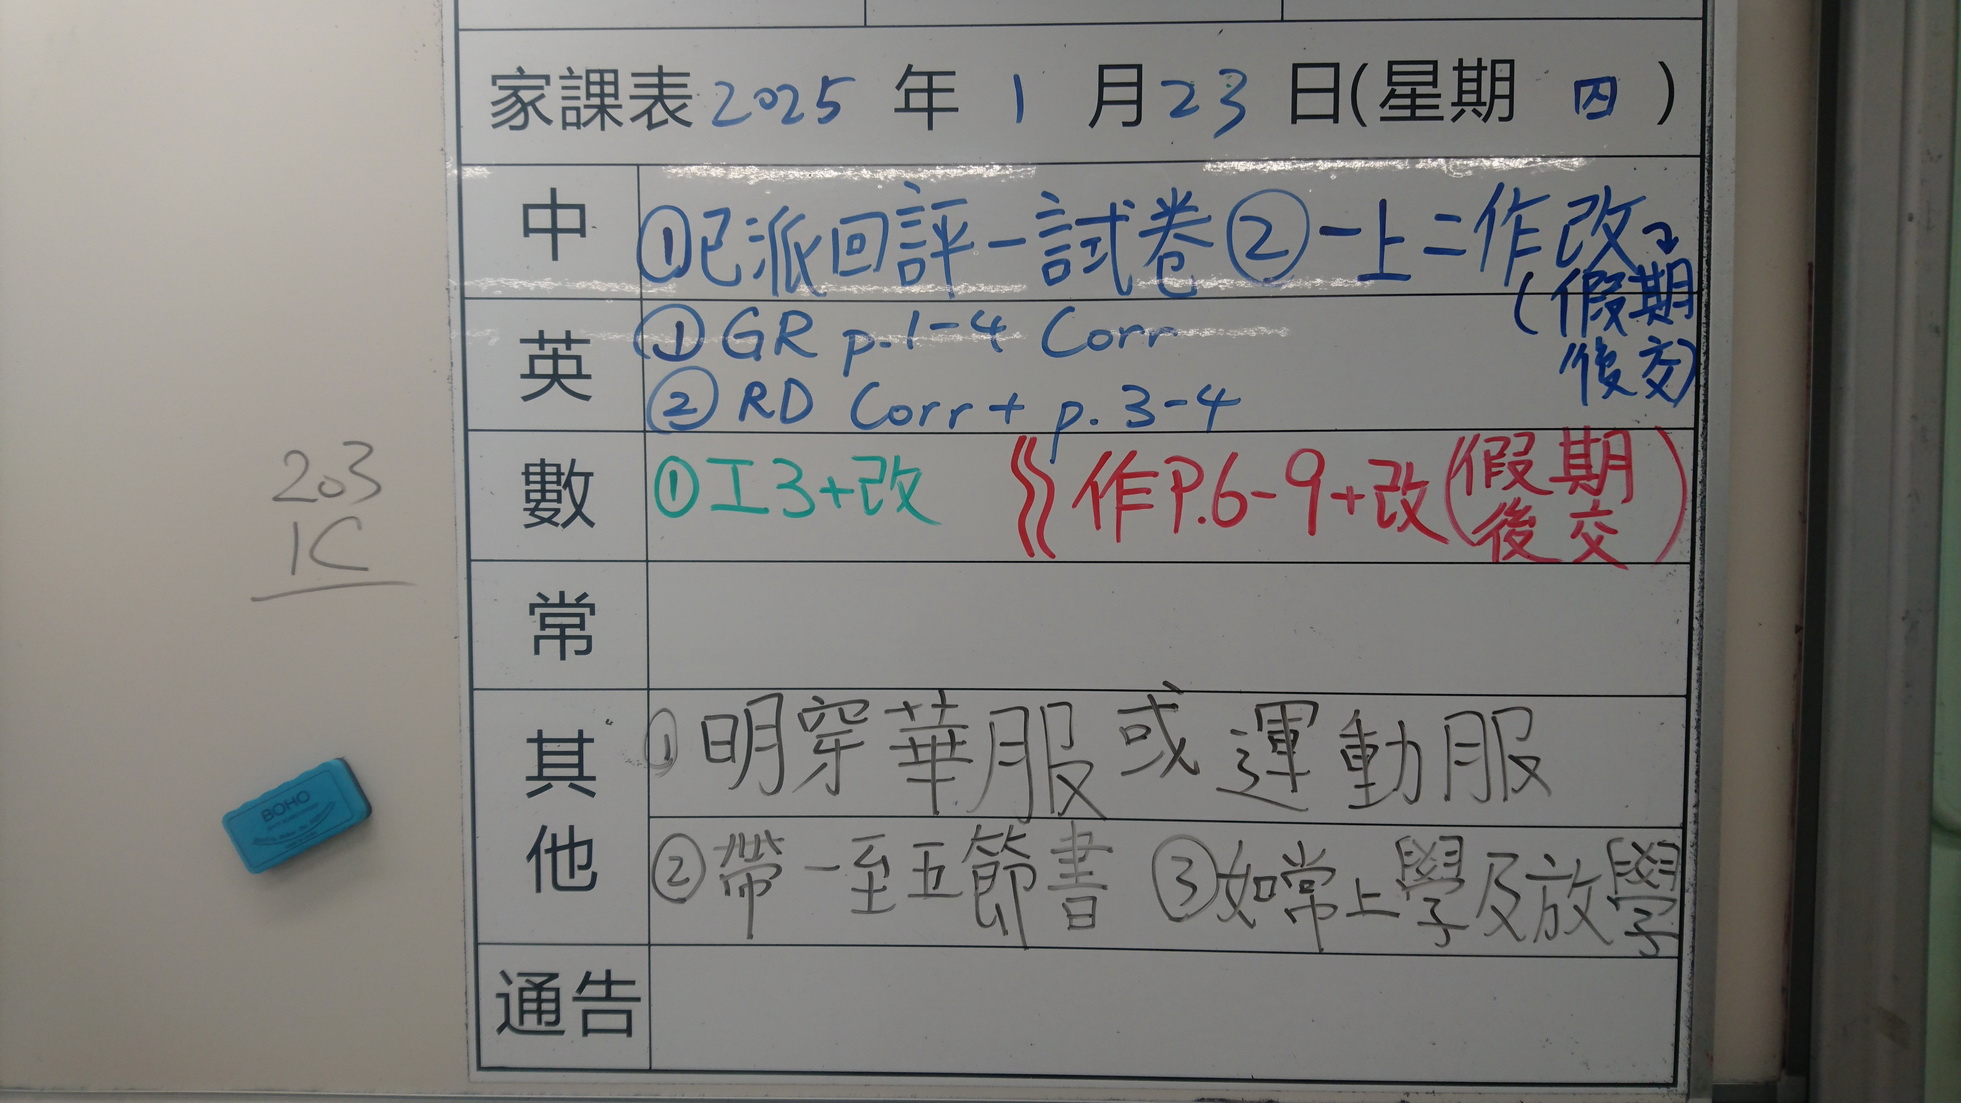 家課表 2025 年 1 月 23 日(星期 四 )
中 ①已派回評一試卷 ②一上二作改
(假期
後交)
英 ① GR p.1-4 Corr
② RD Corr + p.3-4
數 ①工3+改 作P.6-9+改(假期
後交)
常
其他 ①明穿華服或運動服
②帶一至五節書 ③如常上學及放學
通告
203
1C
BOHO